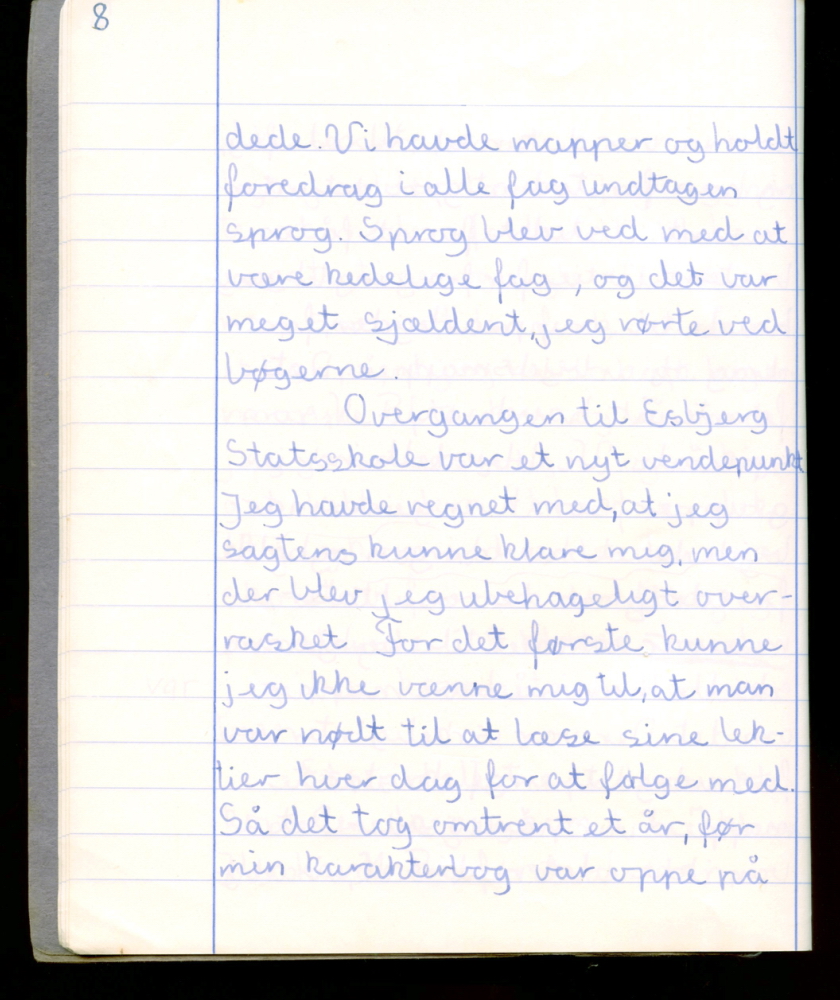 8
dede. Vi havde mapper og holdt
foredrag i alle fag undtagen
sprog. Sprog blev ved med at
være kedelige fag, og det var
meget sjældent, jeg rørte ved
bøgerne.
Overgangen til Esbjerg
Statsskole var et nyt vendepunkt
Jeg havde regnet med, at jeg
sagtens kunne klare mig, men
der blev jeg ubehageligt over-
rasket For det første kunne
jeg ikke vænne mig til, at man
var nødt til at læse sine lek-
tier hver dag for at følge med.
Så det tog omtrent et år, før
min karakterbog var oppe på